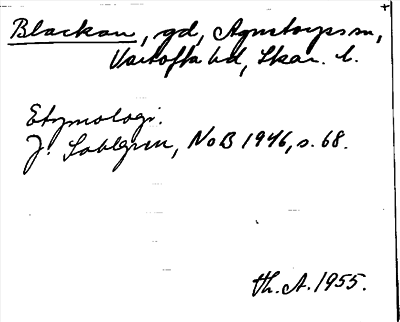 Blackan, gd, Agnetorps sn,
Vartofta hd, Skar. l.
Etymologi.
J. Sahlgren, NoB 1946, s. 68.
th. A. 1955.